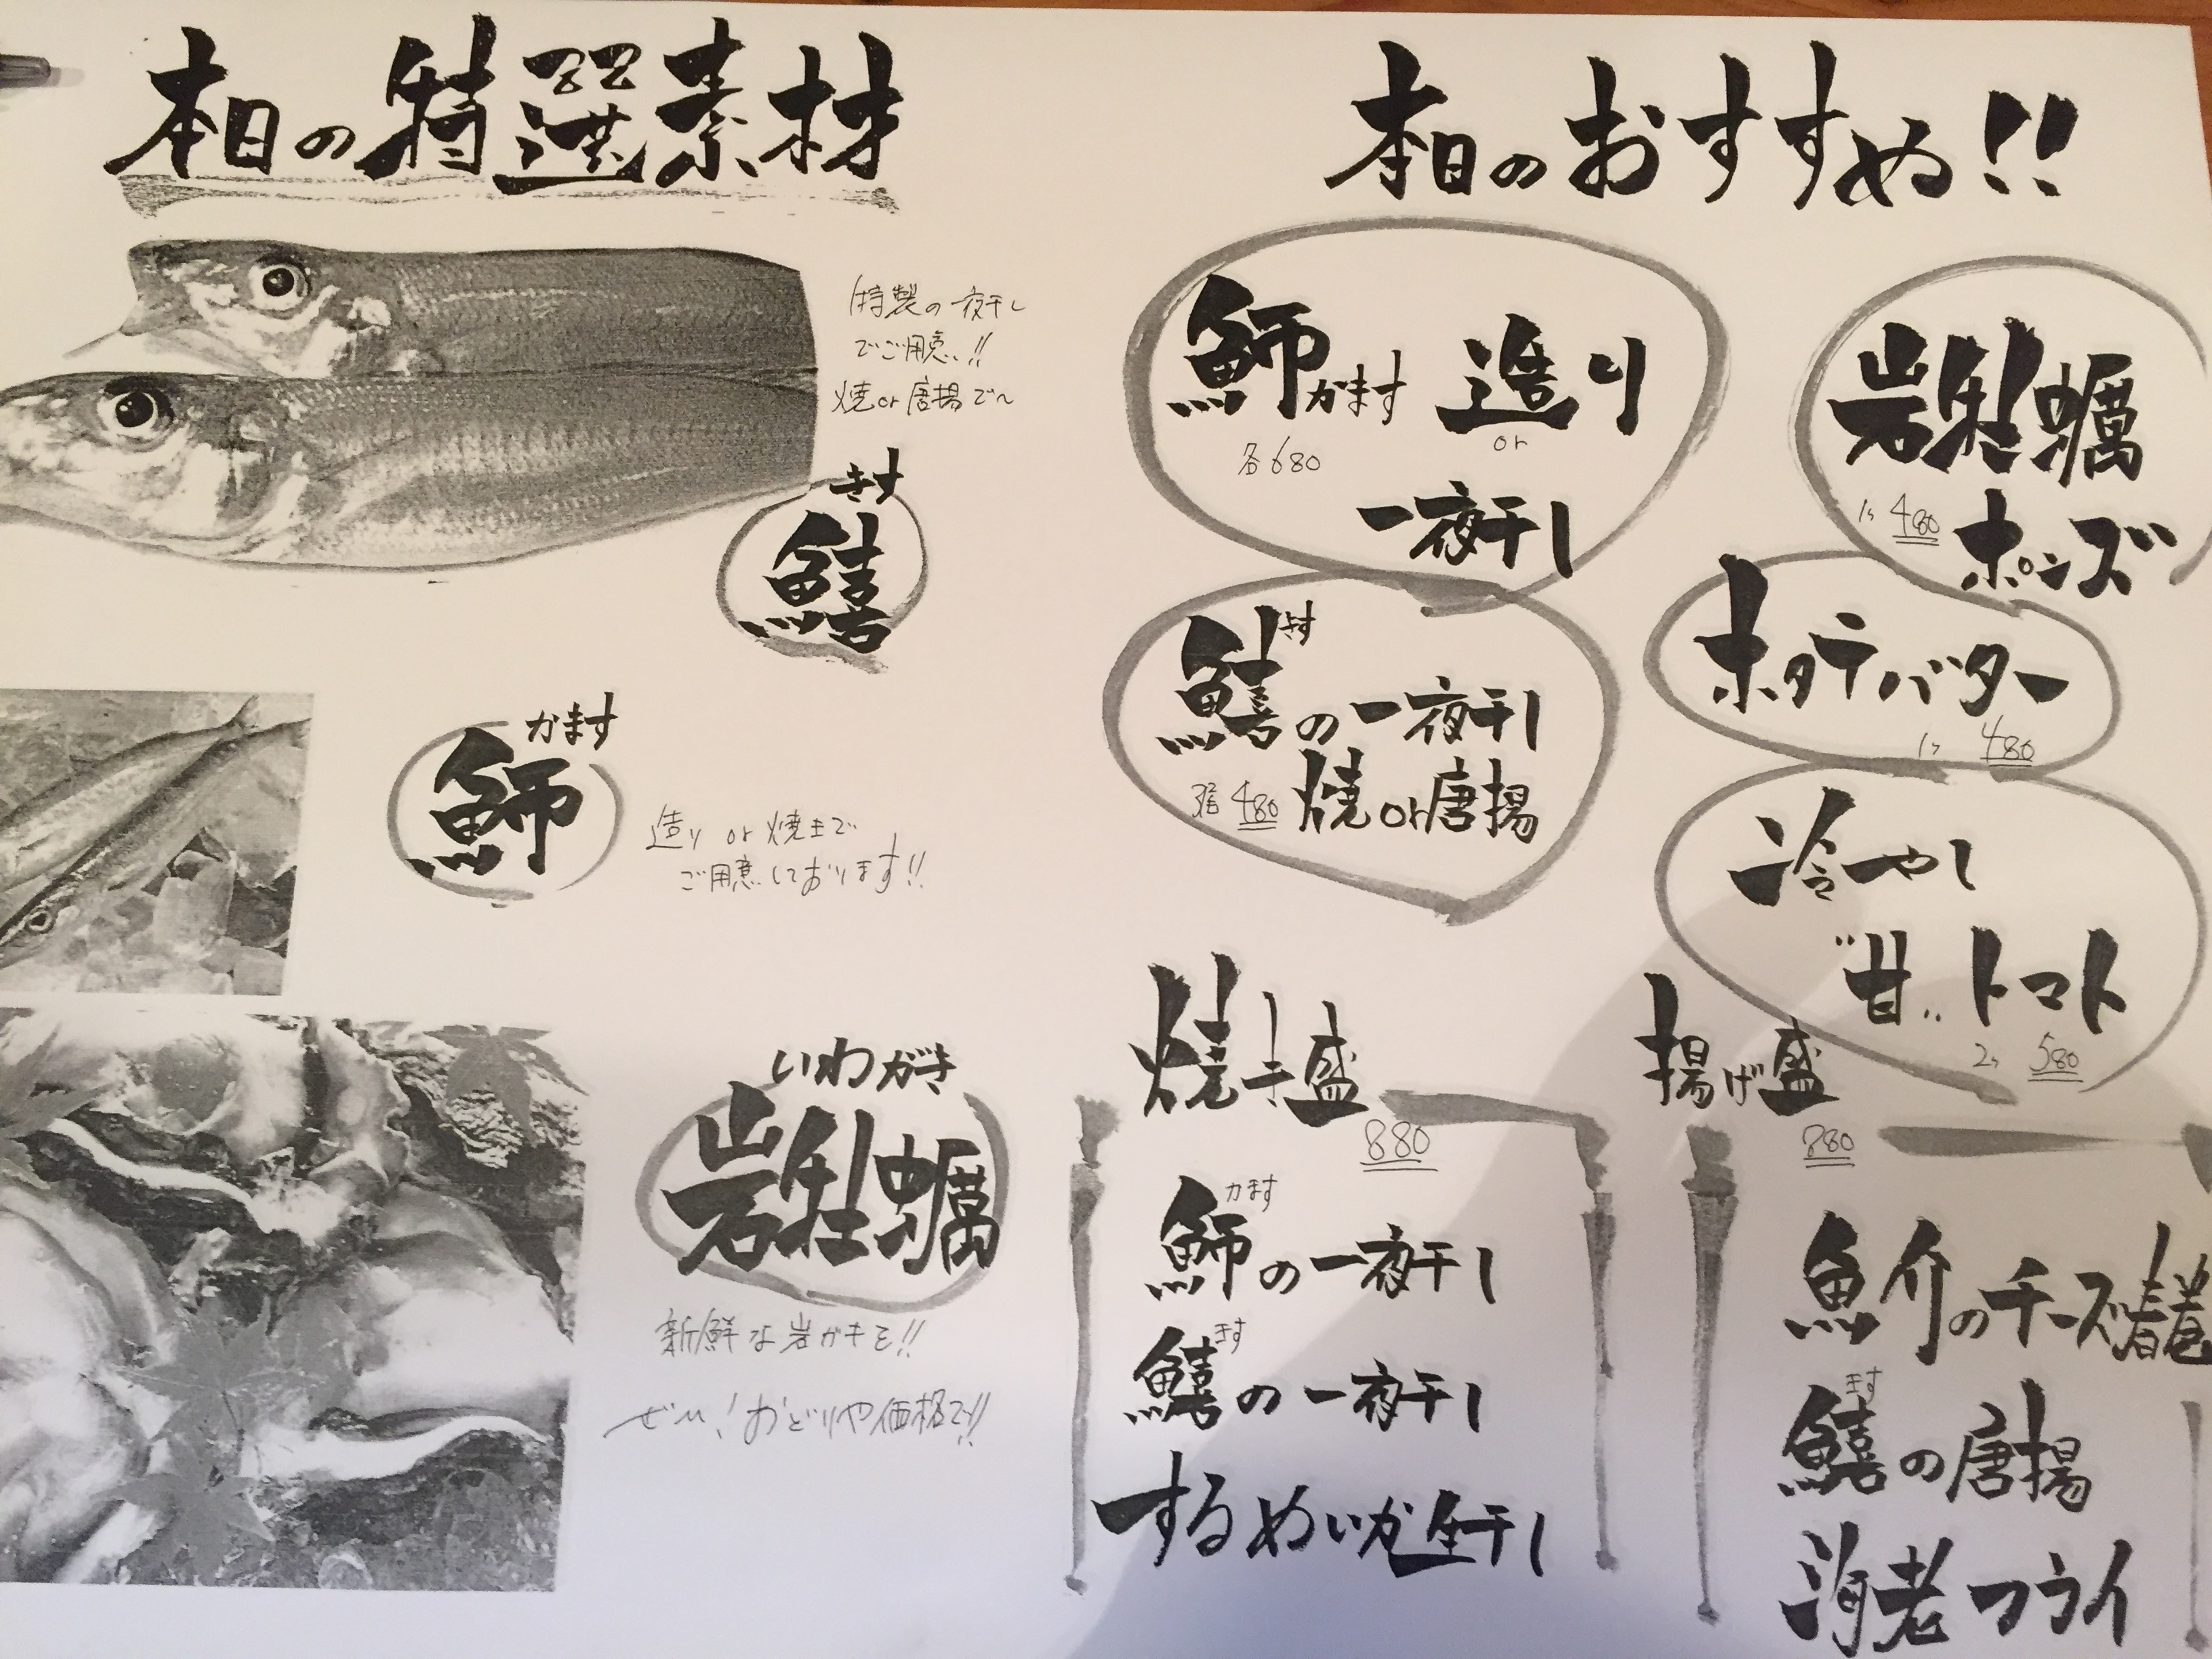 本日の特選素材
特製の一夜干し
でご用意!!
焼or唐揚で〜
きす
鱚
かます
魳
造り or 焼きで
ご用意しております!!
いわがき
岩牡蠣
新鮮な岩ガキを!!
ぜひ!おどりや価格で!!
本日のおすすめ!!
魳 かます 造り
各680 or
一夜干し
岩牡蠣
1ヶ 480 ポンズ
きす
鱚の一夜干し
480 焼or唐揚
ホタテバター
1ヶ 480
冷やし
"甘"トマト
2ヶ 580
焼き盛
880
かます
魳の一夜干し
きす
鱚の一夜干し
するめいか
干し
揚げ盛
880
魚介のチーズ春巻
きす
鱚の唐揚
海老フライ